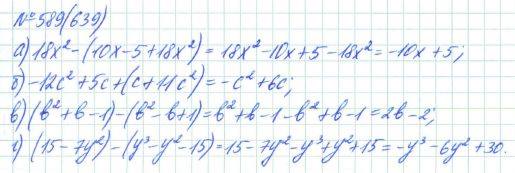 №589(639)
а) 18x² - (10x - 5 + 18x²) = 18x² - 10x + 5 - 18x² = -10x + 5;
б) -12c² + 5c + (c + 11c²) = -c² + 6c;
в) (b² + b - 1) - (b² - b + 1) = b² + b - 1 - b² + b - 1 = 2b - 2;
г) (15 - 7y²) - (y³ - y² - 15) = 15 - 7y² - y³ + y² + 15 = -y³ - 6y² + 30.